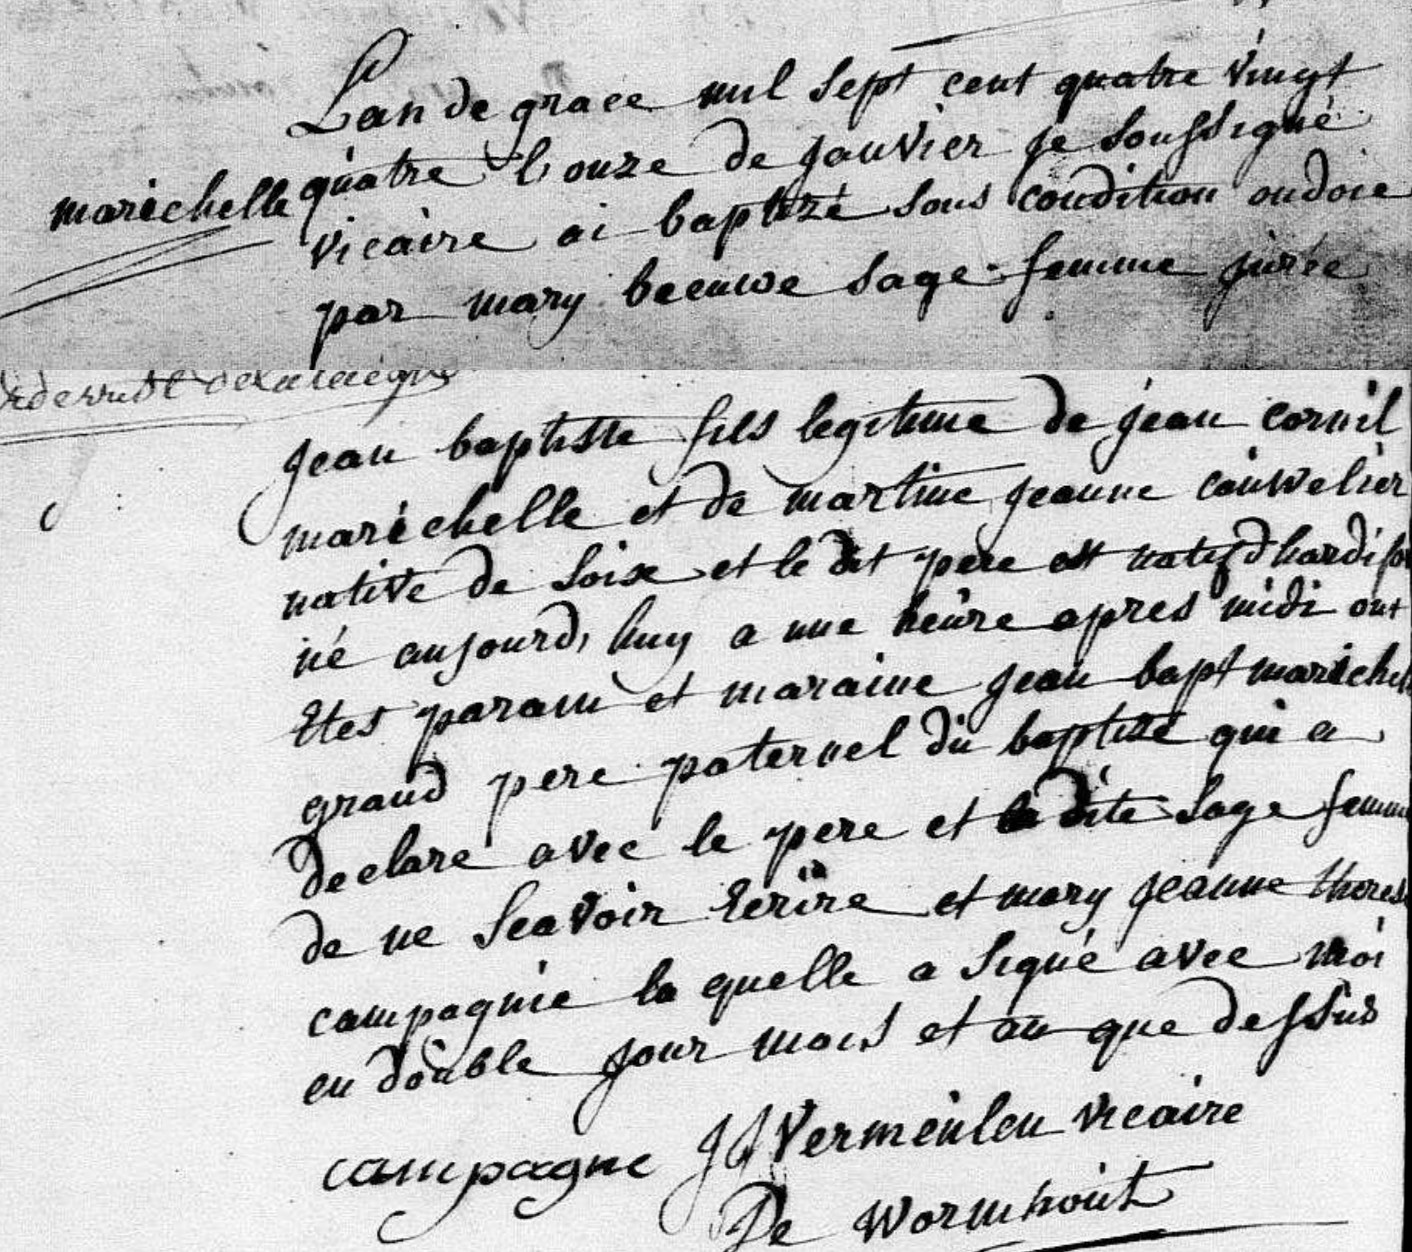 Lan de grace mil sept cent quatre vingt
quatre l'onze de janvier je soussigné
marichelle
vicaire ai baptizé sous condition ondoié
par mary beeuwe sage-femme jurée
jean baptiste fils legitime de jean cornil
maréchelle et de martine jeanne cauwelier
native de soix et le dit pere est natif d'hardifor
né aujourd'huy a une heure apres midi ont
Etes parain et maraine jean bapt marichell
grand pere paternel du baptizé qui a
declare avec le pere et la dite sage femme
de ne scavoir Ecrire et mary jeanne therese
campagnie la quelle a signé avec moi
en double jour mois et an que dessus
campagne JJ Vermeulen vicaire
De Wormhout